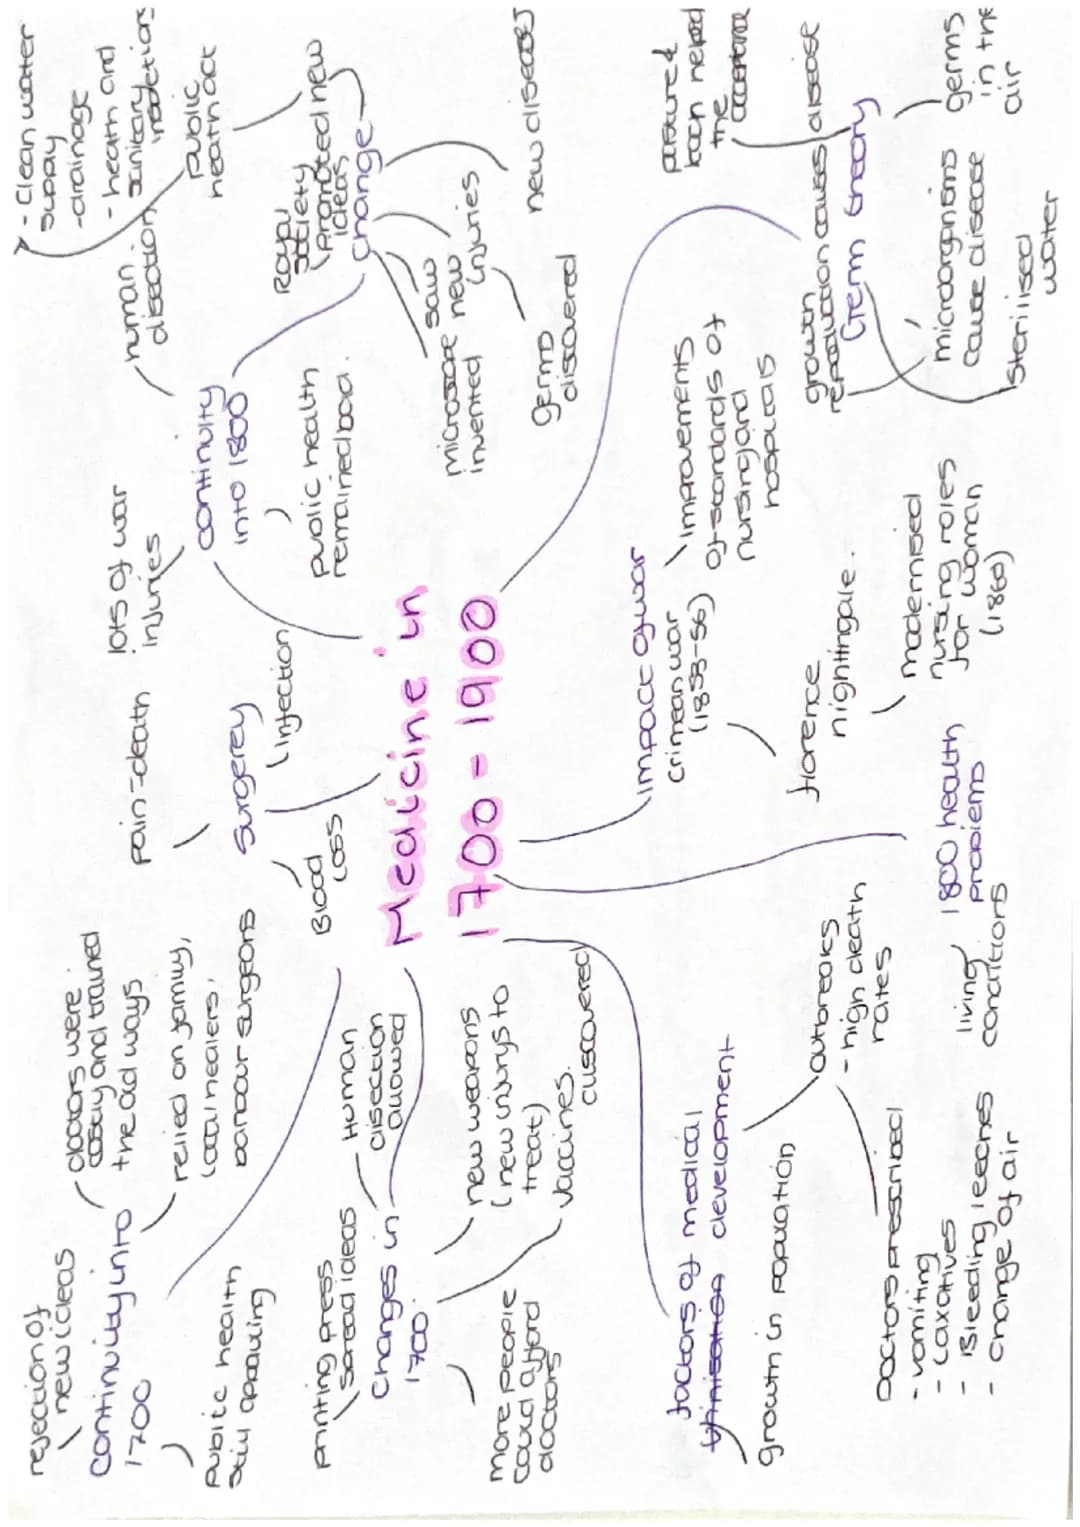 Medicine in
1700 - 1900
rejection of
new ideas
Continuity into
1700
doctors were
and trained
the old ways
relied on family,
local healers,
barbour surgeons
public health
still appauling
printing press
spread ideas
Changes in
1700
Human
disection
allowed
new weapons
(new injurys to
treat)
vaccines.
discovered
more people
could afford
doctors
pain-death
surgerey
Blood
Loss
infection
lots of war
injuries
continuity
into 1800
human
disection
public health
remained bad.
change
Royal
society
promoted new
ideas
public
heath act
- Clean water
supply
-drainage
- heath and
sanitary
inspections
microscope
invented
saw
new
injuries
germs
discovered
new diseases
factors of medical
development
growth in population
outbreaks
- high death
rates
Doctors prescribed
- vomiting
- Laxatives
- Bleeding leeches
- change of air
1800 health
problems
living
conditions
impact of war
crimean war
(1853-56)
improvements
of standards of
nursing and
hospitals
florence
nightingale.
modernised
nursing roles
for woman
(1860)
Germ theory
growth
reproduction causes disease
the
microorganisms
cause disease
germs
in the
air
Sterilised
water